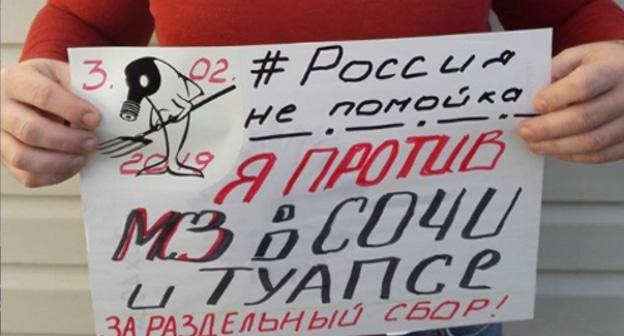 3. 02.
2019
#Россия
не помойка
Я ПРОТИВ
МЗ В СОЧИ
и ТУАПСЕ
ЗА РАЗДЕЛЬНЫЙ СБОР!